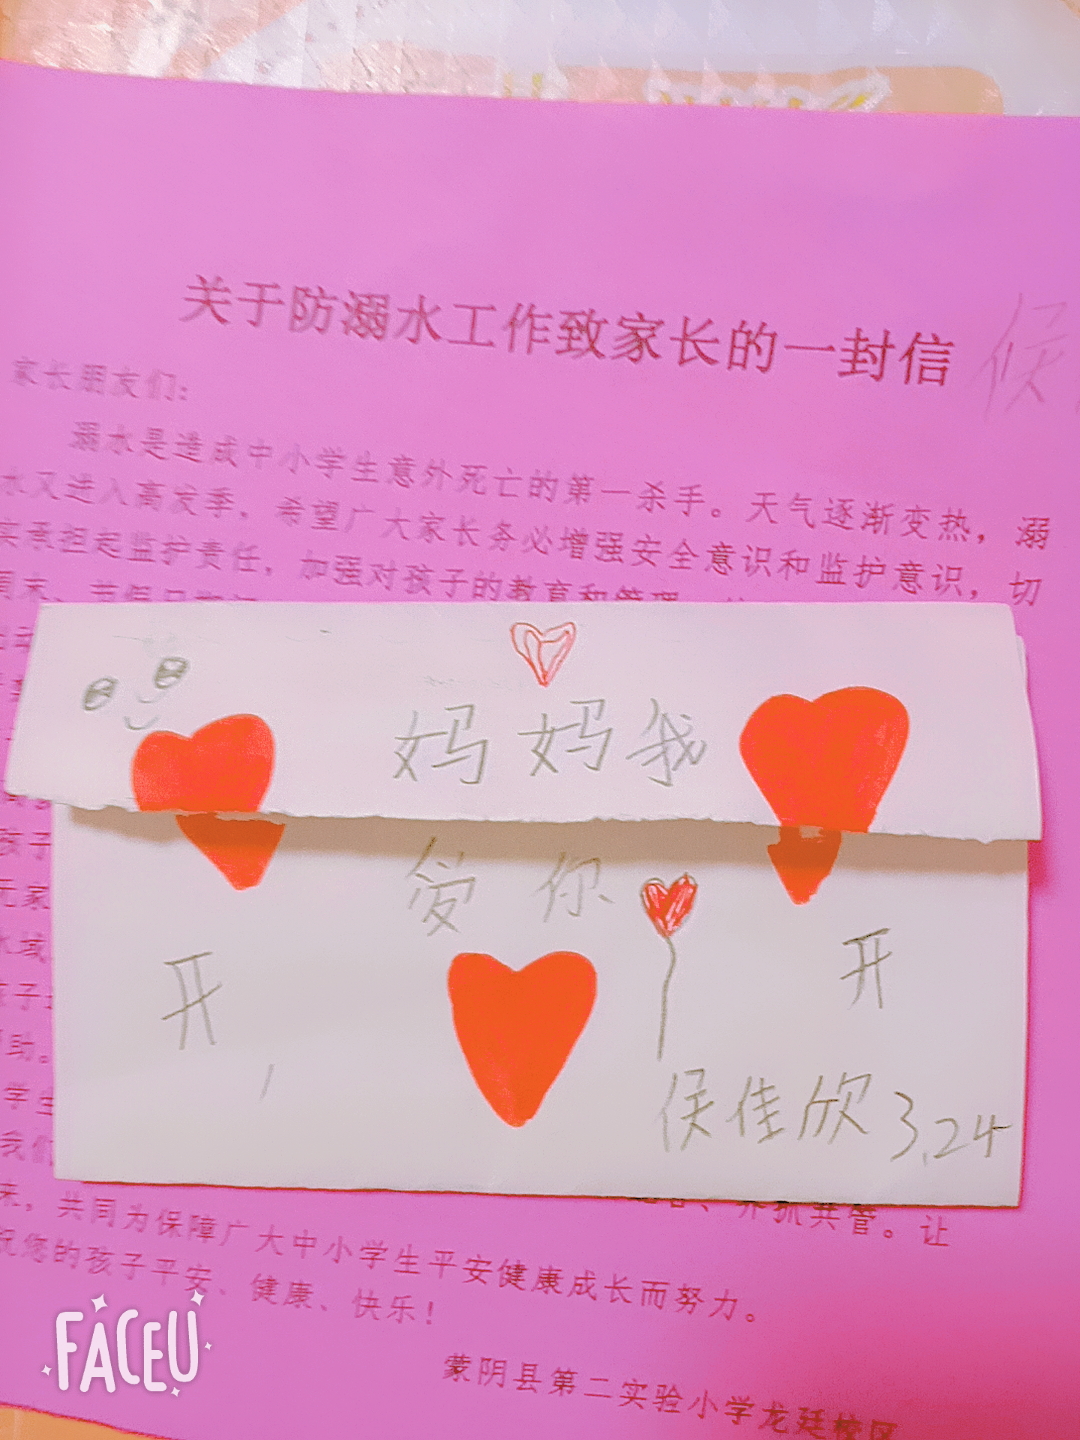 关于防溺水工作致家长的一封信
候
家长朋友们：
溺水是造成中小学生意外死亡的第一杀手。天气逐渐变热，溺
水又进入高发季，希望广大家长务必增强安全意识和监护意识，切
实承担起监护责任，加强对孩子的教育和管理
周末、节假日期间
妈妈我
爱你
开
开
侯佳欣3.24
孩子
无家
水域
孩子
助。
学生
我们
齐抓共管。让
来，共同为保障广大中小学生平安健康成长而努力。
祝您的孩子平安、健康、快乐！
蒙阴县第二实验小学龙廷校区
FACEU